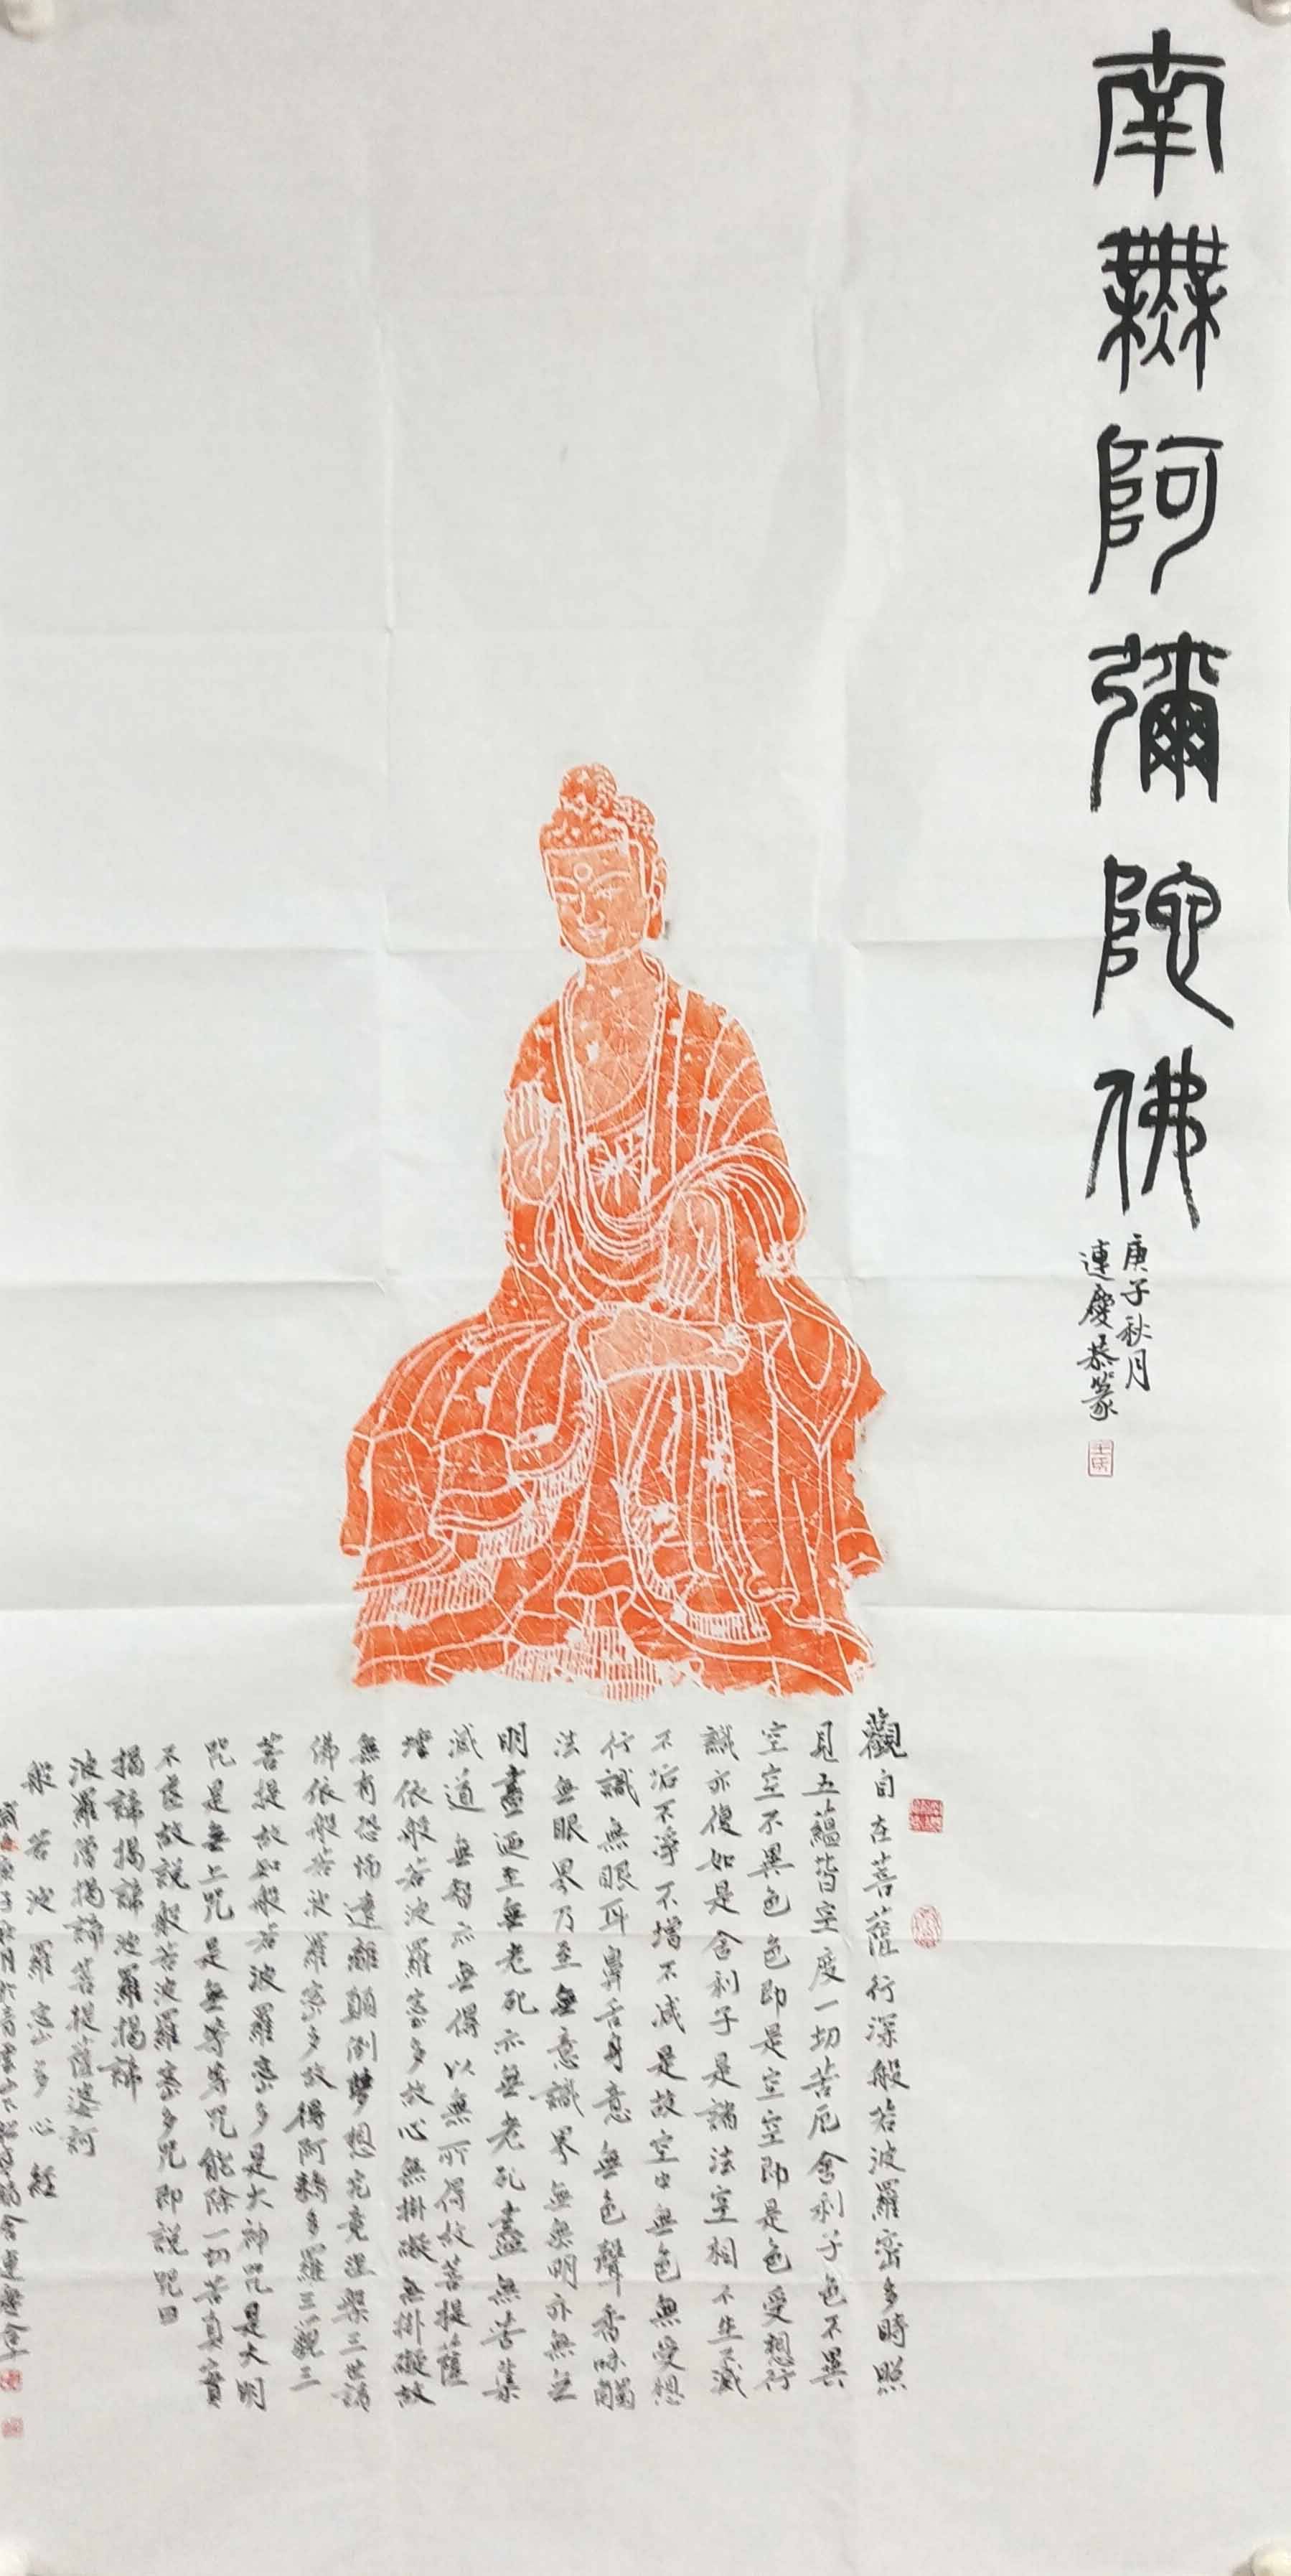 南無阿彌陀佛
庚子秋月
連慶恭篆
觀自在菩薩行深般若波羅密多時照
見五蘊皆空度一切苦厄舍利子色不異
空空不異色色即是空空即是色受想行
識亦復如是舍利子是諸法空相不生不滅
不垢不淨不增不減是故空中無色無受想
行識無眼耳鼻舌身意無色聲香味觸
法無眼界乃至無意識界無無明亦無無
明盡迺至無老死亦無老死盡無苦集
滅道無智亦無得以無所得故菩提薩
埵依般若波羅密多故心無掛礙無掛礙故
無有恐怖遠離顛倒夢想究竟涅槃三世諸
佛依般若波羅密多故得阿耨多羅三藐三
菩提故知般若波羅密多是大神咒是大明
咒是無上咒是無等等咒能除一切苦真實
不虛故說般若波羅密多咒即說咒曰
揭諦揭諦波羅揭諦
波羅僧揭諦菩提薩婆訶
般若波羅密多心經
庚子秋月於